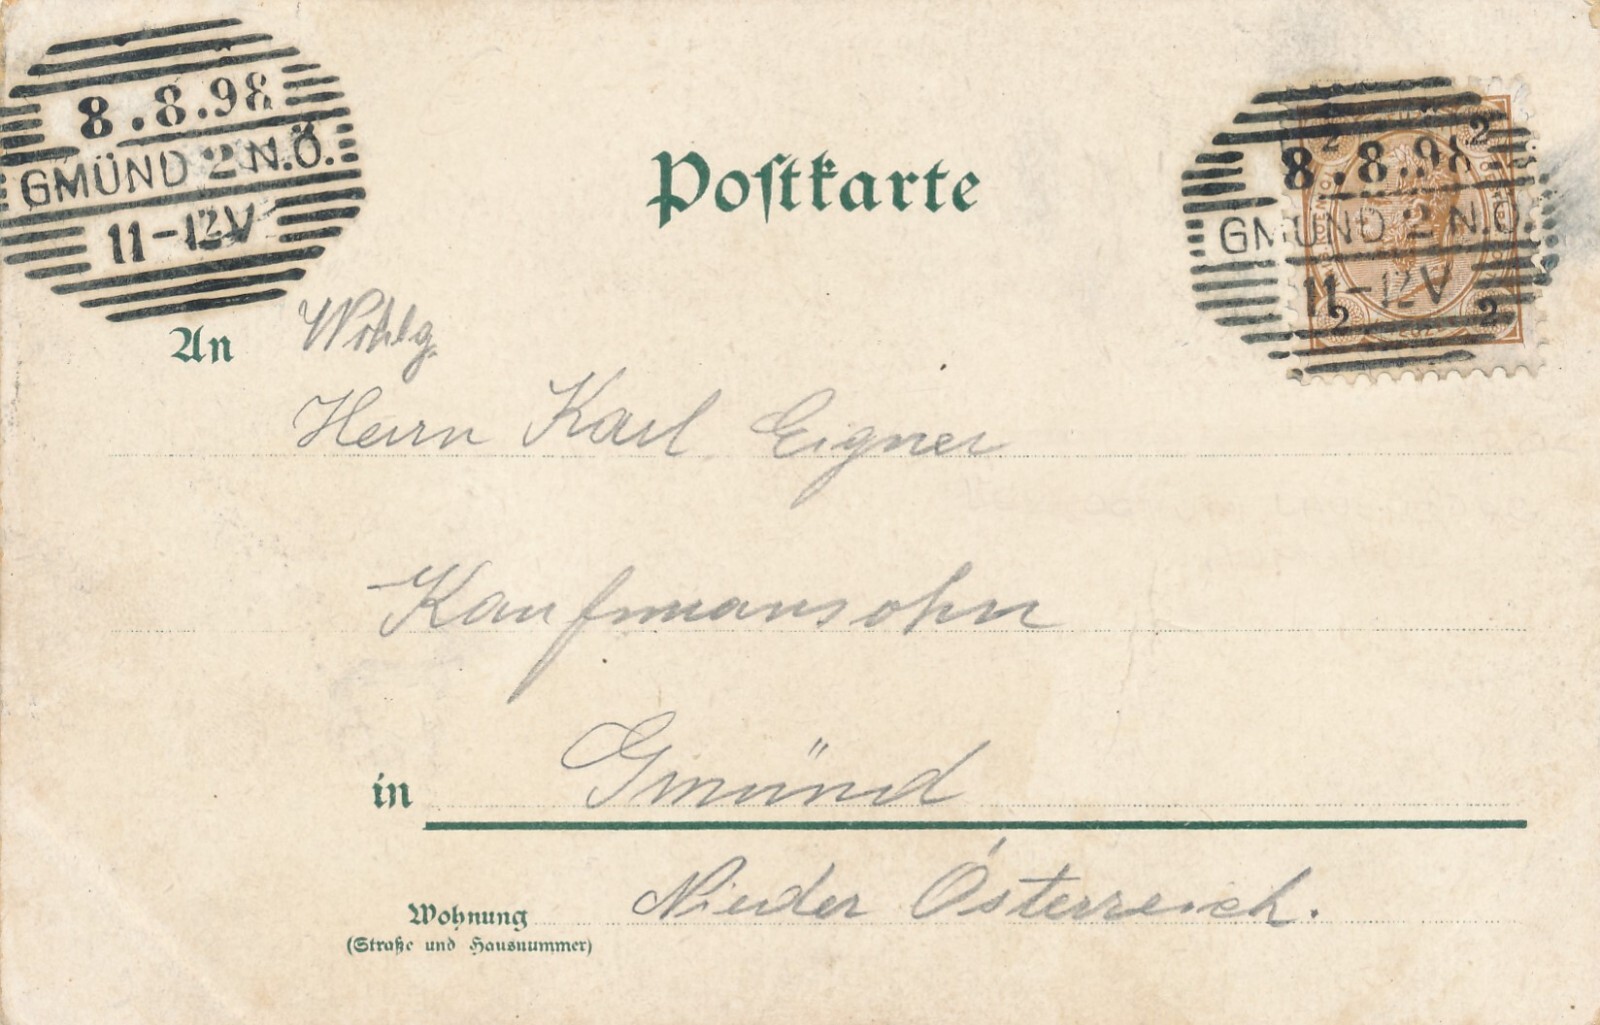 8.8.98
GMÜND 2 N.Ö.
11-12V
Postkarte
2 2
8.8.98
GMÜND 2 N.Ö.
11-12V
2 2
An Wohlg.
Herrn Karl Eigner
Kaufmansohn
in Gmünd
Wohnung Nieder Österreich.
(Straße und Hausnummer)